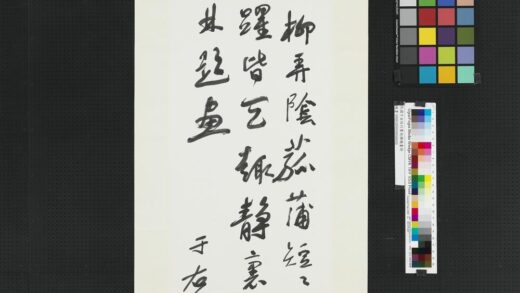 柳弄陰菰蒲短〻
躍皆天趣靜裏
林題畫
于右